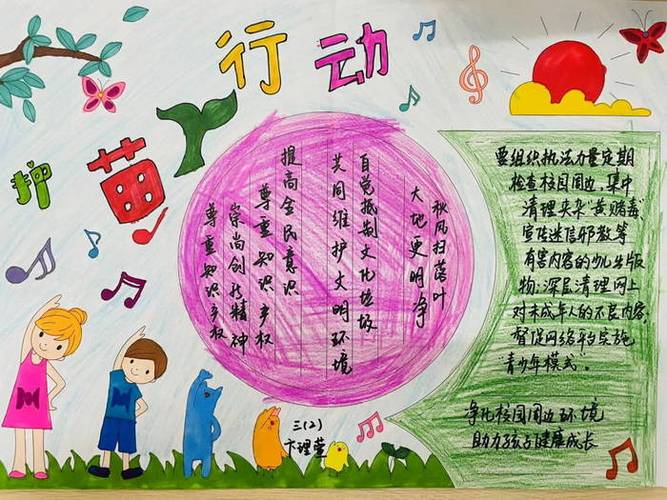 护苗行动
秋风扫落叶
大地更明净
自觉抵制文化垃圾
共同维护文明环境
提高全民意识
尊重知识产权
崇尚创新精神
尊重知识产权
要组织执法力量定期
检查校园周边,集中
清理夹杂"黄赌毒"
宣传迷信邪教等
有害内容的少儿出版
物;深层清理网上
对未成年人的不良内容,
督促网络平台实施
"青少年模式"。
净化校园周边环境
助力孩子健康成长
三(2)
卞理萱